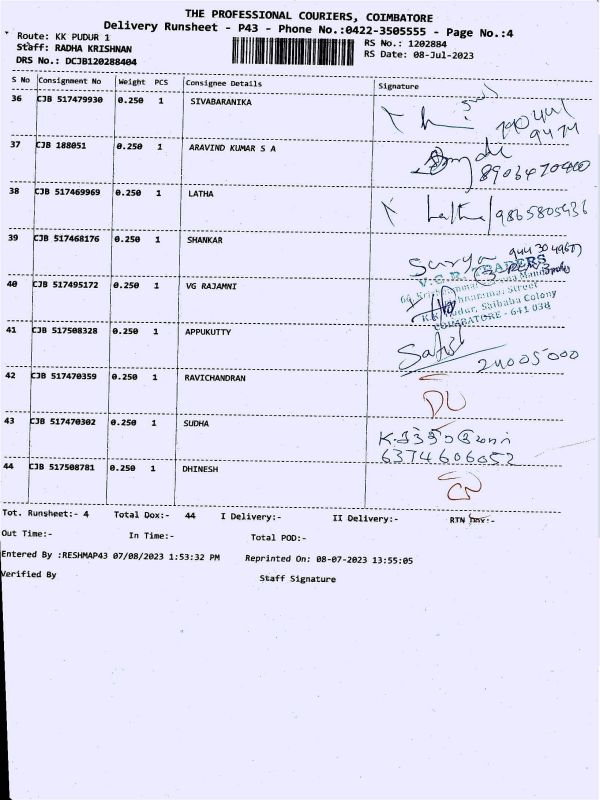 THE PROFESSIONAL COURIERS, COIMBATORE
Delivery Runsheet - P43 - Phone No.:0422-3505555 - Page No.:4
Route: KK PUDUR 1
RS No.: 1202884
Staff: RADHA KRISHNAN
RS Date: 08-Jul-2023
DRS No.: DCJB120288404
S No Consignment No Weight PCS Consignee Details Signature
36 CJB 517479930 0.250 1 SIVABARANIKA
37 CJB 188051 0.250 1 ARAVIND KUMAR S A
38 CJB 517469969 0.250 1 LATHA Latha/9865805936
39 CJB 517468176 0.250 1 SHANKAR Surya
V.G.R. TRADERS
40 CJB 517495172 0.250 1 VG RAJAMNI
Saibaba Colony
COIMBATORE - 641 038
41 CJB 517508328 0.250 1 APPUKUTTY
24005000
42 CJB 517470359 0.250 1 RAVICHANDRAN DU
43 CJB 517470302 0.250 1 SUDHA
6374606052
44 CJB 517508781 0.250 1 DHINESH CN
Tot. Runsheet:- 4 Total Dox:- 44 I Delivery:- II Delivery:- RTN Dov:-
Out Time:- In Time:- Total POD:-
Entered By :RESHMAP43 07/08/2023 1:53:32 PM Reprinted On: 08-07-2023 13:55:05
Verified By Staff Signature